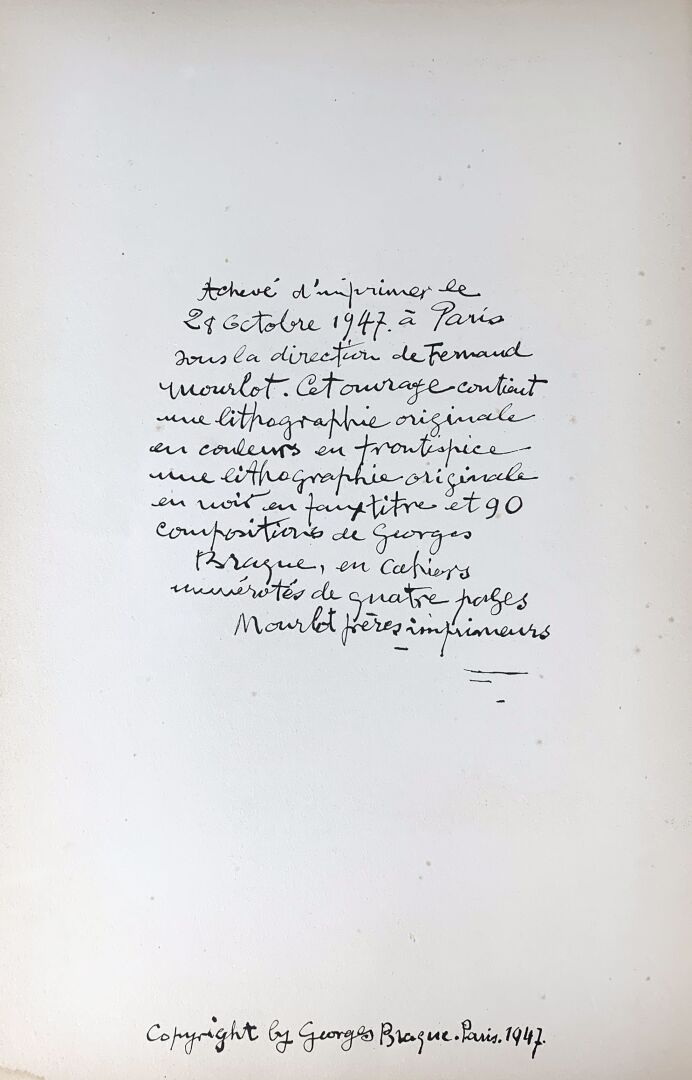 Achevé d'imprimer le
28 Octobre 1947. à Paris
sous la direction de Fernand
Mourlot. Cet ouvrage contient
une lithographie originale
en couleurs en frontispice
une lithographie originale
en noir en faux titre et 90
compositions de Georges
Braque, en Cahiers
numérotés de quatre pages
Mourlot frères imprimeurs
Copyright by Georges Braque. Paris. 1947.